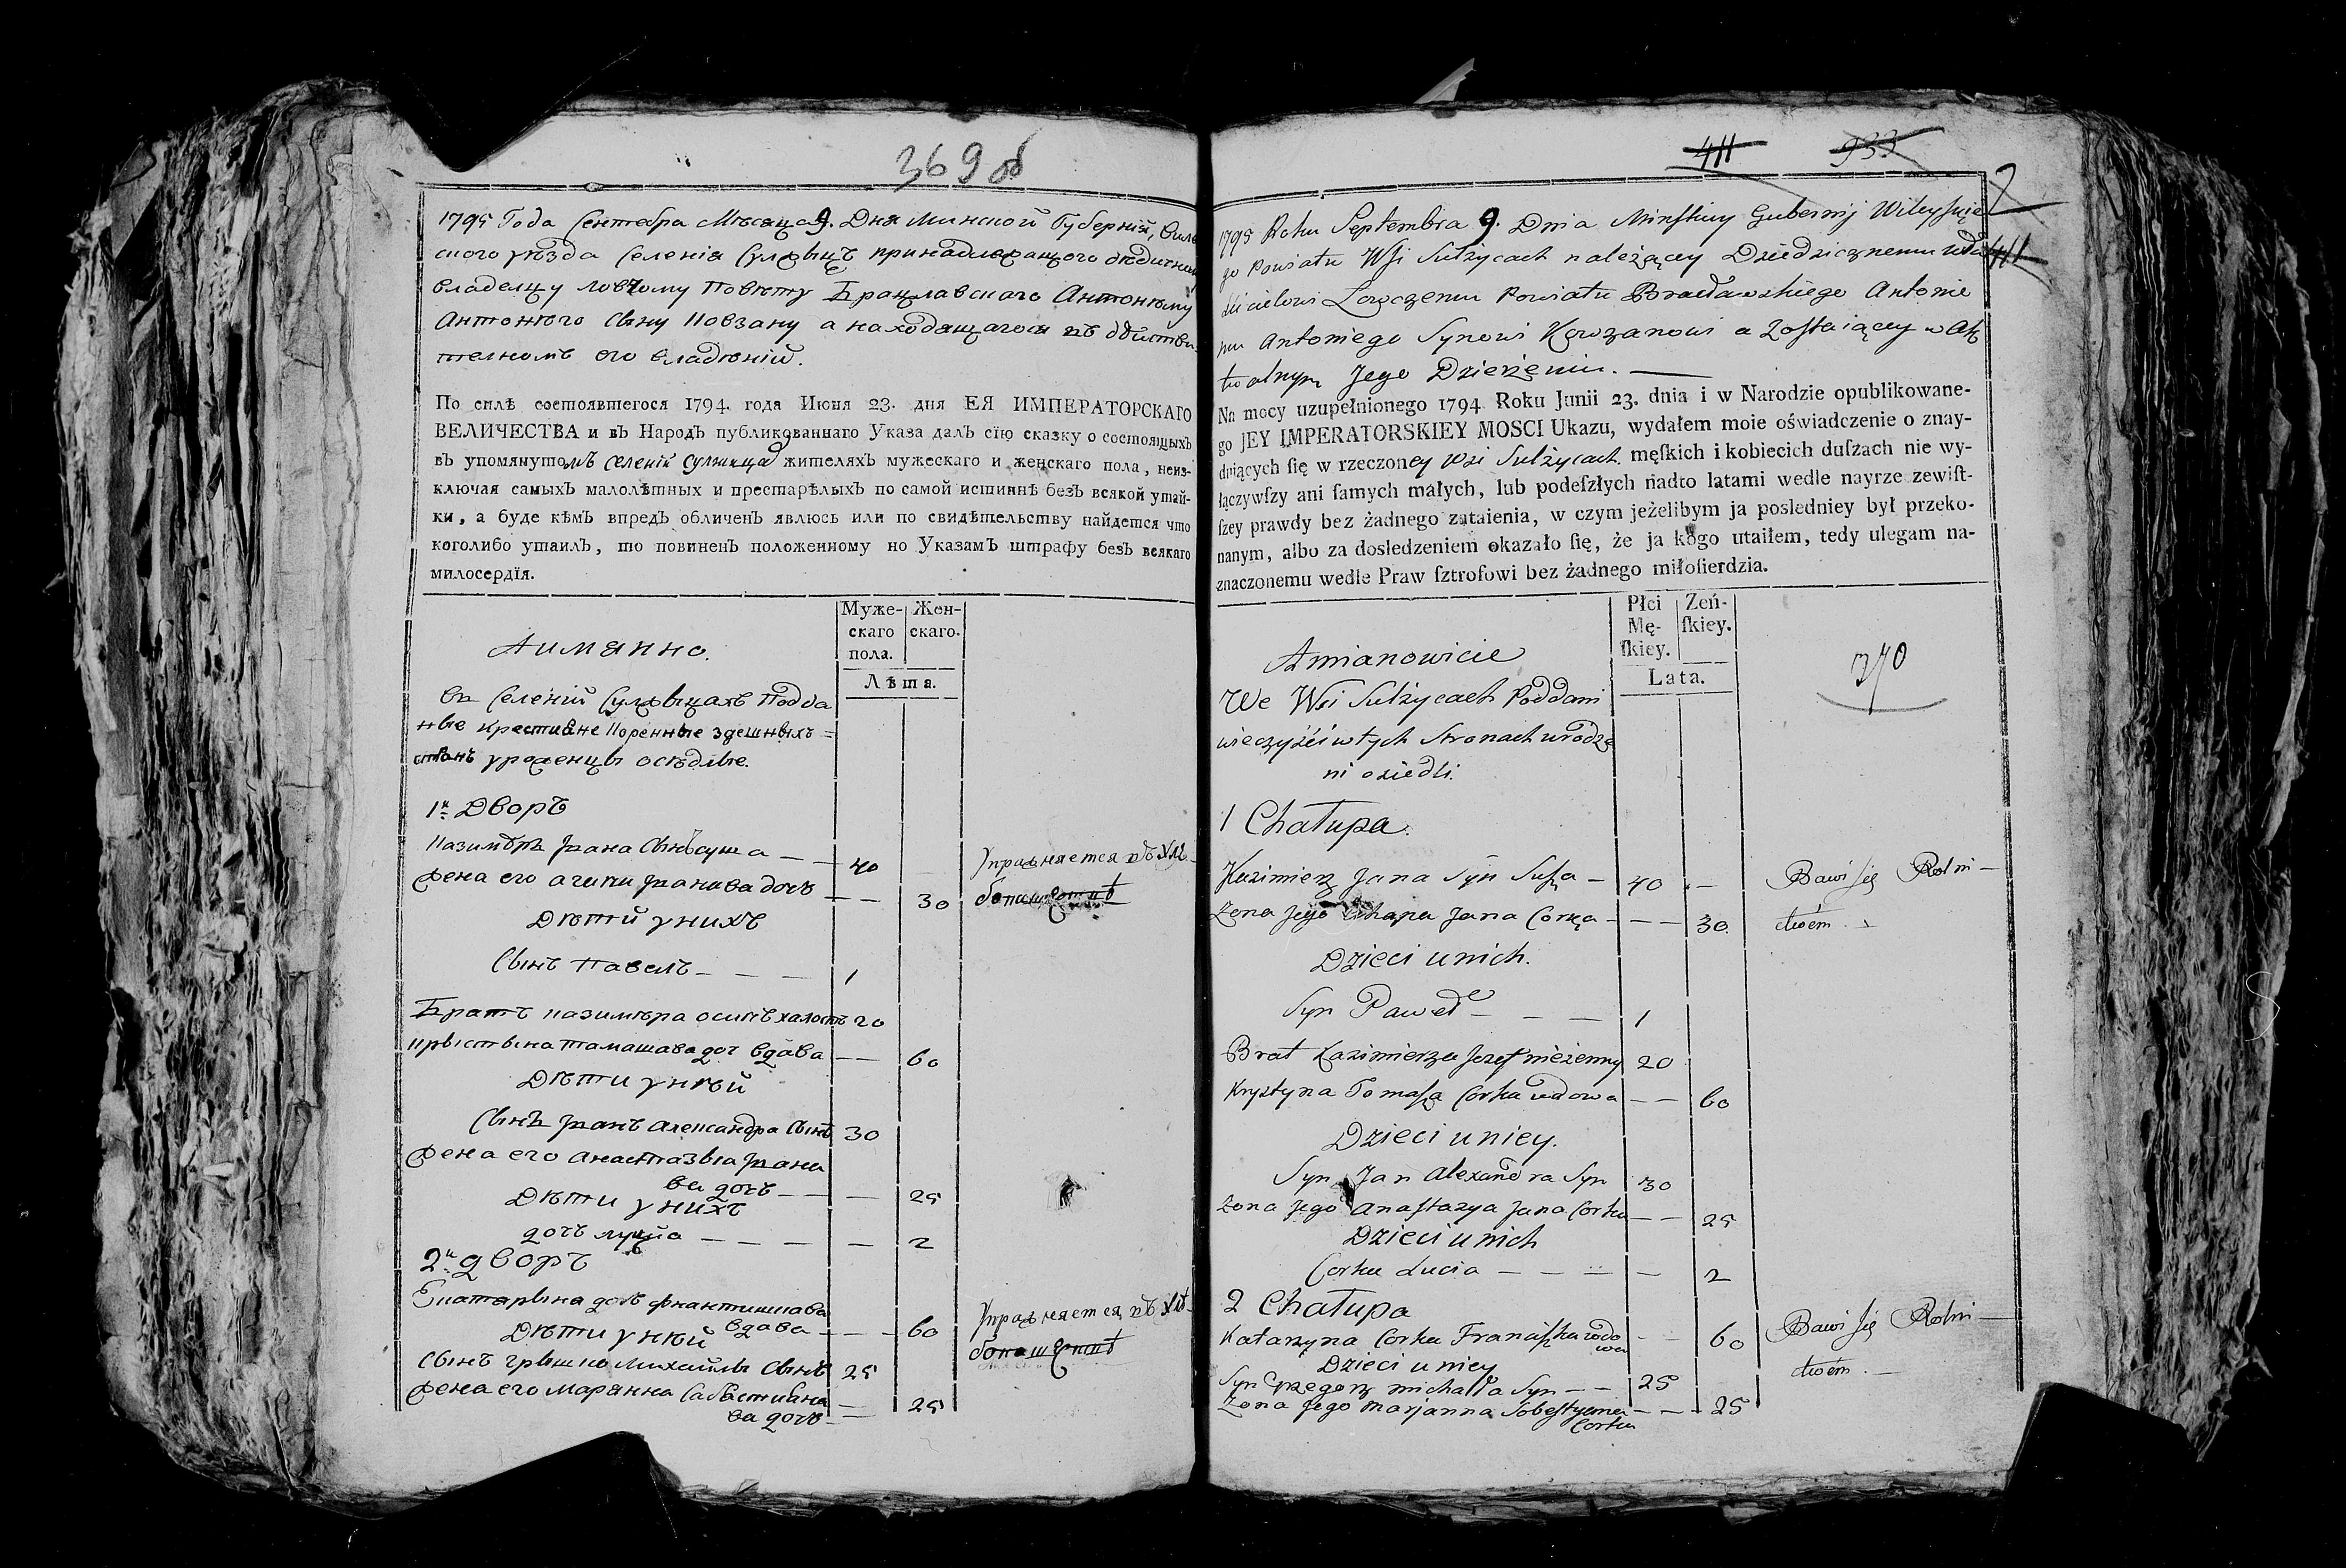 369 об
1795 Года Сентебра Мѣсяца 9. Дня Минской Губерній, Виле
ского уѣзда Селенія Сулжыцъ принадлежащого дѣдичному
владелцу ловчому Повѣту Брацлавского Антонѣму
Антонѣго Сыну Ковзану а находящагося въ дѣиства-
телномъ его владѣній.
По силѣ состоявшегося 1794. года Июня 23. дня ЕЯ ИМПЕРАТОРСКАГО
ВЕЛИЧЕСТВА и въ Народъ публикованнаго Указа далъ сїю сказку о состоящыхъ
въ упомянутомъ селеніи Сулжицах жителяхъ мужескаго и женскаго пола, неиз-
ключая самыхъ малолѣтныхъ и престарѣлыхъ по самой истиннѣ безъ всякой утай-
ки, а буде кѣмъ впредъ обличенъ явлюсь или по свидѣтельству найдется что
коголибо утаилъ, то повиненъ положенному по Указамъ штрафу безъ всякаго
милосердїя.
Муже- Жен-
скаго скаго.
пола.
Лѣта.
Аимянно.
въ Селеній Сулжыцахъ Подда
ные крестияне Коренные здешныхъ
странъ уроженцы осѣдлые.
1й Дворъ
Казимѣръ Яна Сынъ Суша — — 40 Упражняется въ хлѣ-
Жена его Агапа Янава дочъ — — 30 бопашестве
Дѣтй у нихъ
Сынъ Павелъ — — — 1
Братъ казимѣра осипъ халостъ 20
Крыстына Тамашава доч вдава — — 60
Дѣти у нѣй
Сынъ Янъ Александра Сынъ 30
Жена его Анастазыа Яна
ва дочъ — — — 25
Дѣти у нихъ
дочъ луцйа — — — — 2
2й дворъ
Екатарына дочъ Франтишкава
вдава — — — 60 Упражняется въ хлѣ-
Дѣти у нѣй бопашестве
Сынъ Грышко Михайлы Сынъ 25
Жена его Марянна Сабастияна
ва дочъ — — 25
411 933
411
1795 Roku Septembra 9. Dnia Minskiey Gubernij Wileyskie
go Powiatu Wsi Sulżycach należącey Dziedzicznemu Wła
ścicielowi Łowczemu Powiatu Bracławskiego Antonie
mu Antoniego Synowi Kowzanowi a Zostaiącey w Ak
tualnym Jego Dzierżeniu. —
Na mocy uzupełnionego 1794 Roku Junii 23. dnia i w Narodzie opublikowane-
go JEY IMPERATORSKIEY MOSCI Ukazu, wydałem moie oświadczenie o znay-
duiących ſię w rzeczoney Wsi Sulżycach męſkich i kobiecich duſzach nie wy-
łączywſzy ani ſamych małych, lub podeſzłych nadto latami wedle nayrzezewiſt-
ſzey prawdy bez żadnego zataienia, w czym jeżelibym ja posledniey był przeko-
nanym, albo za dosledzeniem okazało ſię, że ja kogo utaiłem, tedy ulegam na-
znaczonemu wedle Praw ſztrofowi bez żadnego miłoſierdzia.
Płci Żeń-
Mę- ſkiey.
ſkiey.
Lata.
370
Amianowicie
We Wsi Sulżycach Poddani
wieczyści w tych Stronach urodze
ni osiedli.
1 Chałupa.
Kazimierz Jana Syn Susza — 40 — Bawi się Rolni —
Żena Jego Ahapa Jana Corka — — — 30. ctwem.
Dzieci u nich.
Syn Paweł — — — 1
Brat Kazimierza Jozef nieżenny 20
Krystyna Tomasza Corka wdowa — — 60
Dzieci u niey.
Syn Jan Alexandra Syn 30
Żona Jego Anastazya Jana Corka — — 25
Dzieci u nich
Corka Lucia — — — — 2
2 Chałupa
Katarzyna Corka Franciszka wdo
wa — — 60 Bawi się Rolni —
Dzieci u niey ctwem. —
Syn Grzegorz Michała Syn — — 25
Żona Jego Marjanna Sobestyana — — — 25
Corka